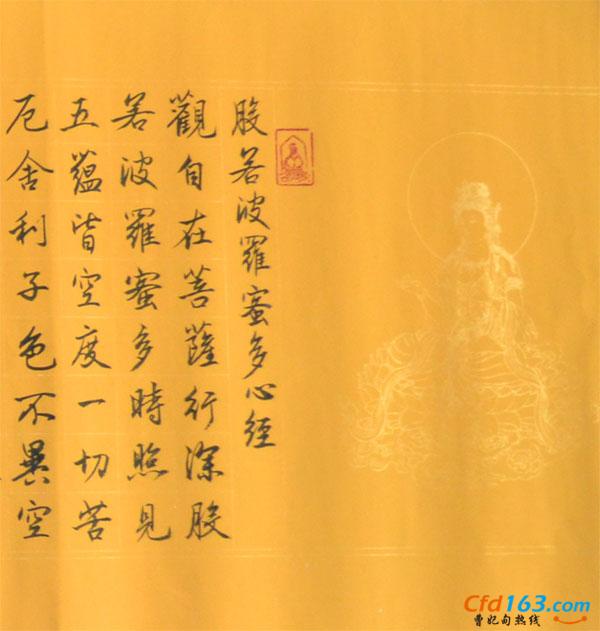 般若波羅蜜多心經
觀自在菩薩行深般
若波羅蜜多時照見
五蘊皆空度一切苦
厄舍利子色不異空
Cfd163.com
曹妃甸热线